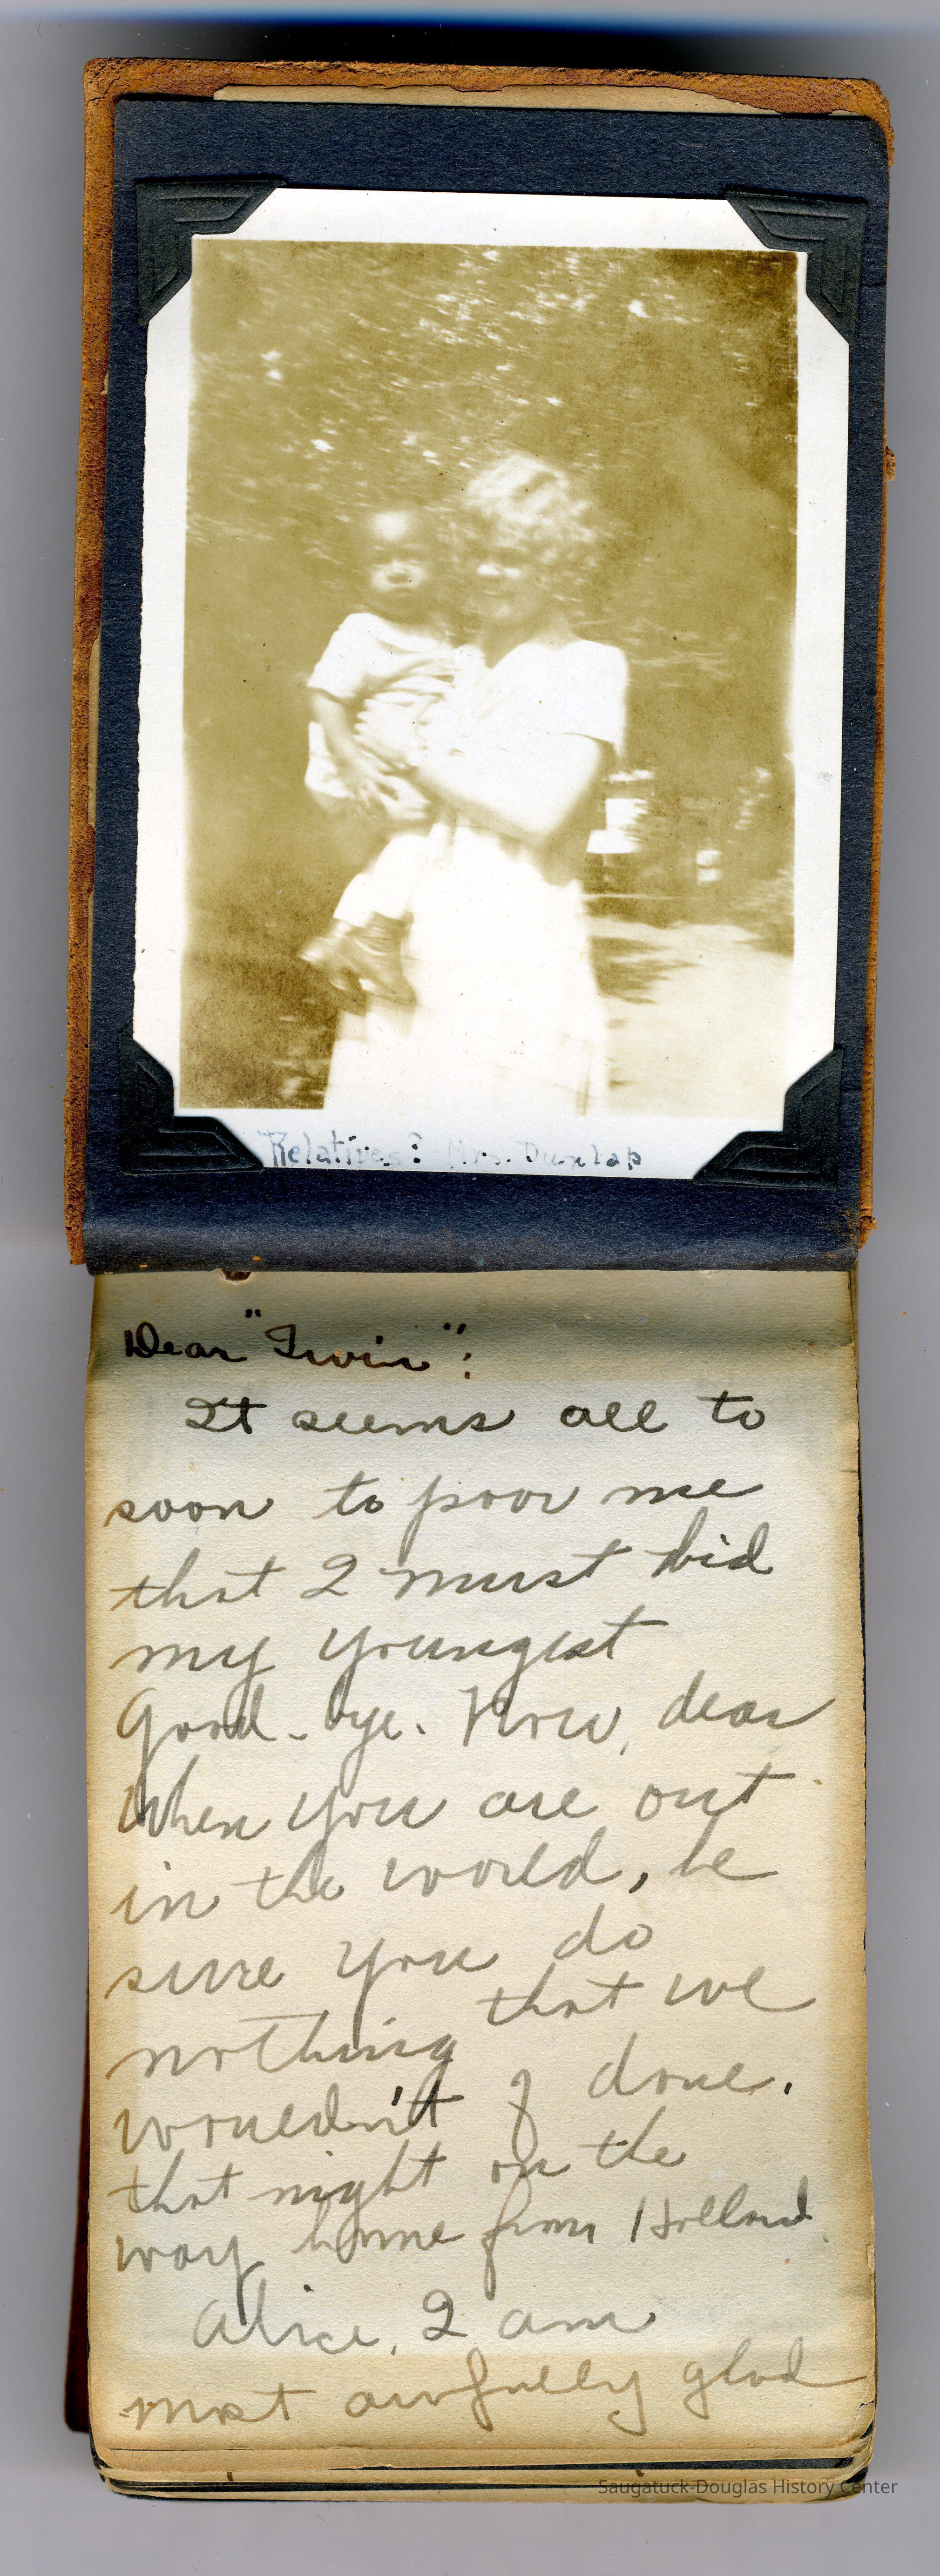 "Relatives? Mrs. Dunlap
Dear "Twin":
It seems all to
soon to poor me
that I must bid
my youngest
Good-bye. Now, dear
when you are out
in the world, be
sure you do
nothing that we
wouldn't of done.
that night on the
way home from Holland.
Alice, I am
most awfully glad
Saugatuck-Douglas History Center